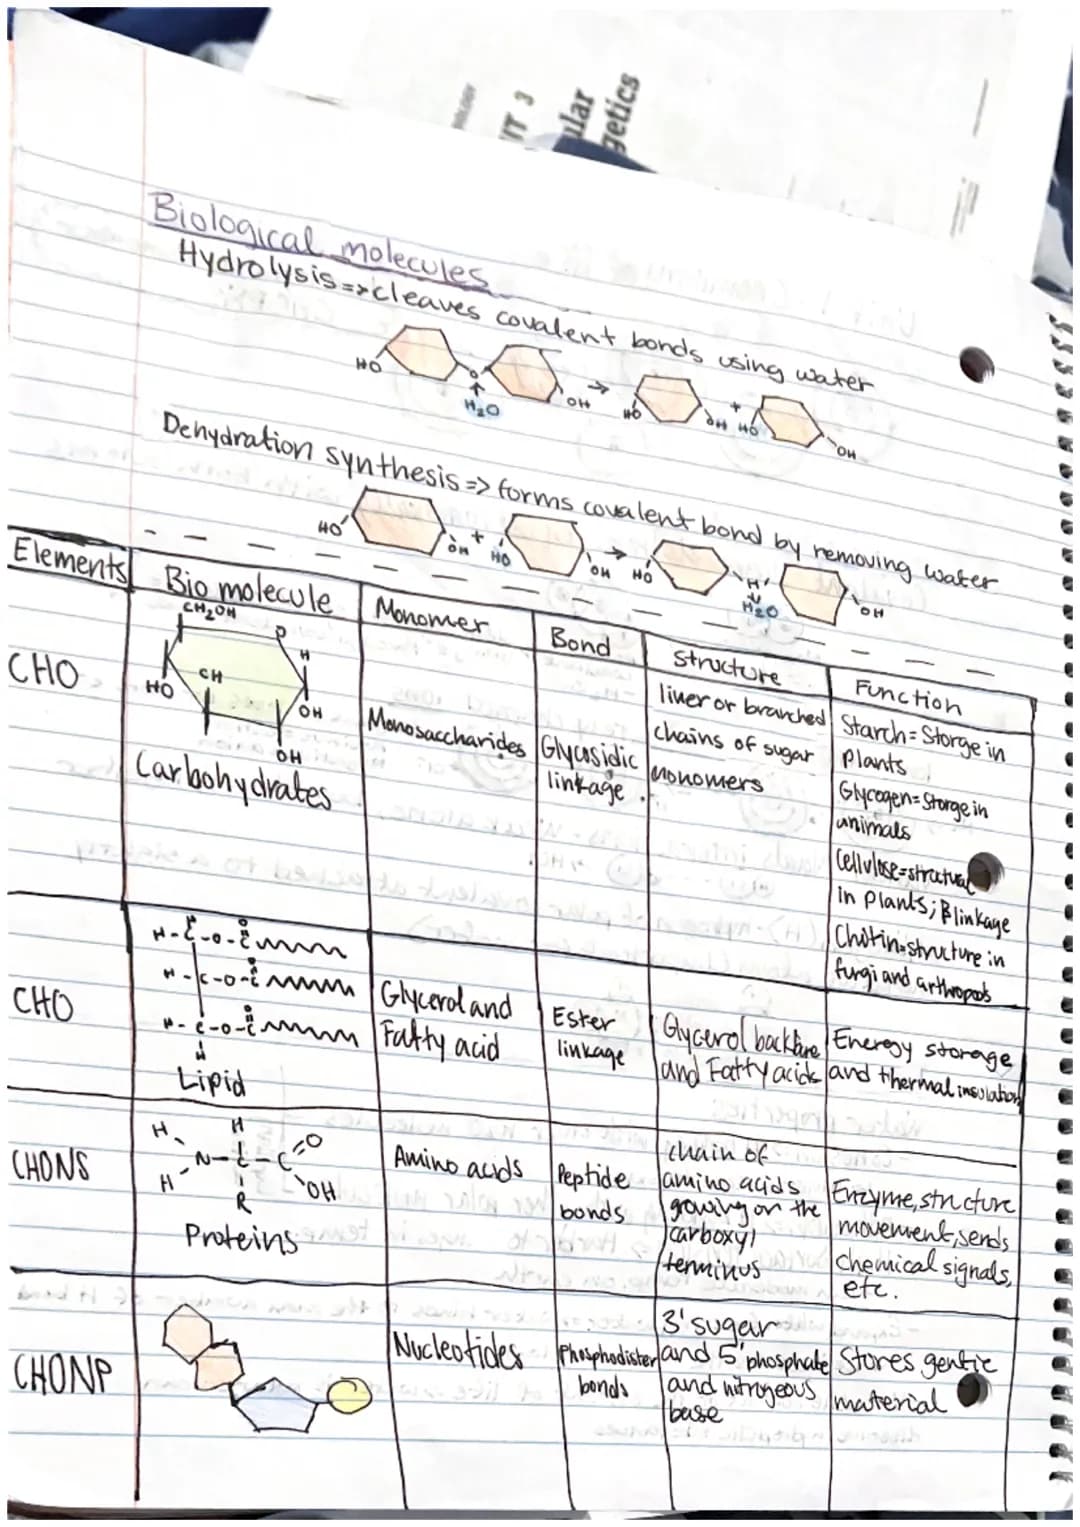 UT 3
ular
getics
Biological molecules
Hydrolysis=>cleaves covalent bonds using water
HO
O
H₂O
OH
HO
OH
+
HO
OH
Dehydration synthesis => forms covalent bond by removing water
HO
OH
+
HO
OH
HO
H
H₂O
OH
Elements
Bio molecule
Monomer
Bond
structure
Function
CHO
CH₂OH
H
CH
HO
OH
OH
Carbohydrates
Monosaccharides
Glycosidic
linkage
liner or branched
chains of sugar
monomers
Starch=Storge in
plants
Glycogen=Storge in
animals
Cellulose=structual
in plants; β linkage
Chitin=structure in
fungi and arthropods
CHO
H-C-O-C
H-C-O-C
H-C-O-C
H
Lipid
Glycerol and
Fatty acid
Ester
linkage
Glycerol backbone
and Fatty acids
Energy storage
and thermal insulation
CHONS
H
H
N-C-C=O
H
R
OH
Proteins
Amino acids
Peptide
bonds
chain of
amino acids
growing on the
carboxyl
terminus
Enzyme, strcture
movement, sends
chemical signals,
etc.
CHONP
Nucleotides
Phosphodister
bonds
3' sugar
and 5' phosphate
and nitrogeous
base
Stores gentic
material